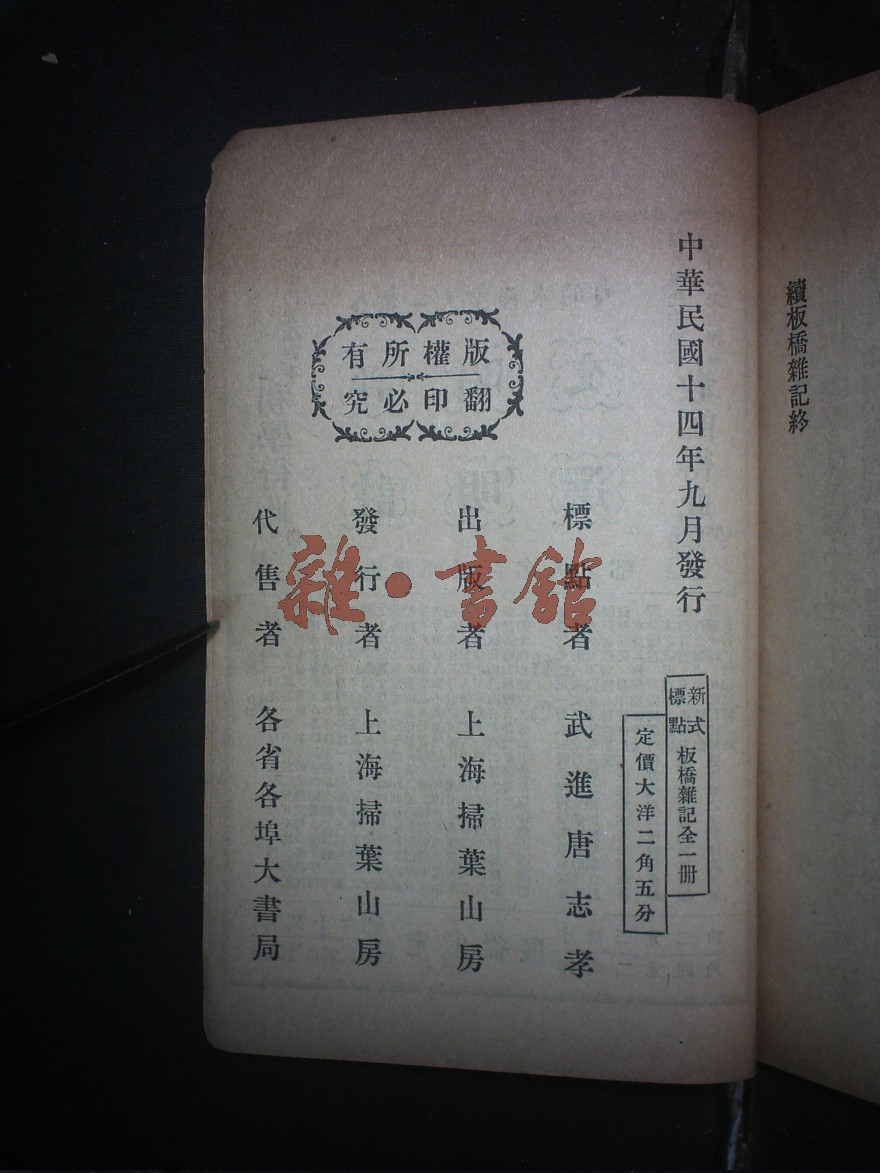 續板橋雜記終
中華民國十四年九月發行
新式標點 板橋雜記全一册
定價大洋二角五分
標點者 武進唐志孝
出版者 上海掃葉山房
版權所有
翻印必究
發行者 上海掃葉山房
代售者 各省各埠大書局
雜·書館